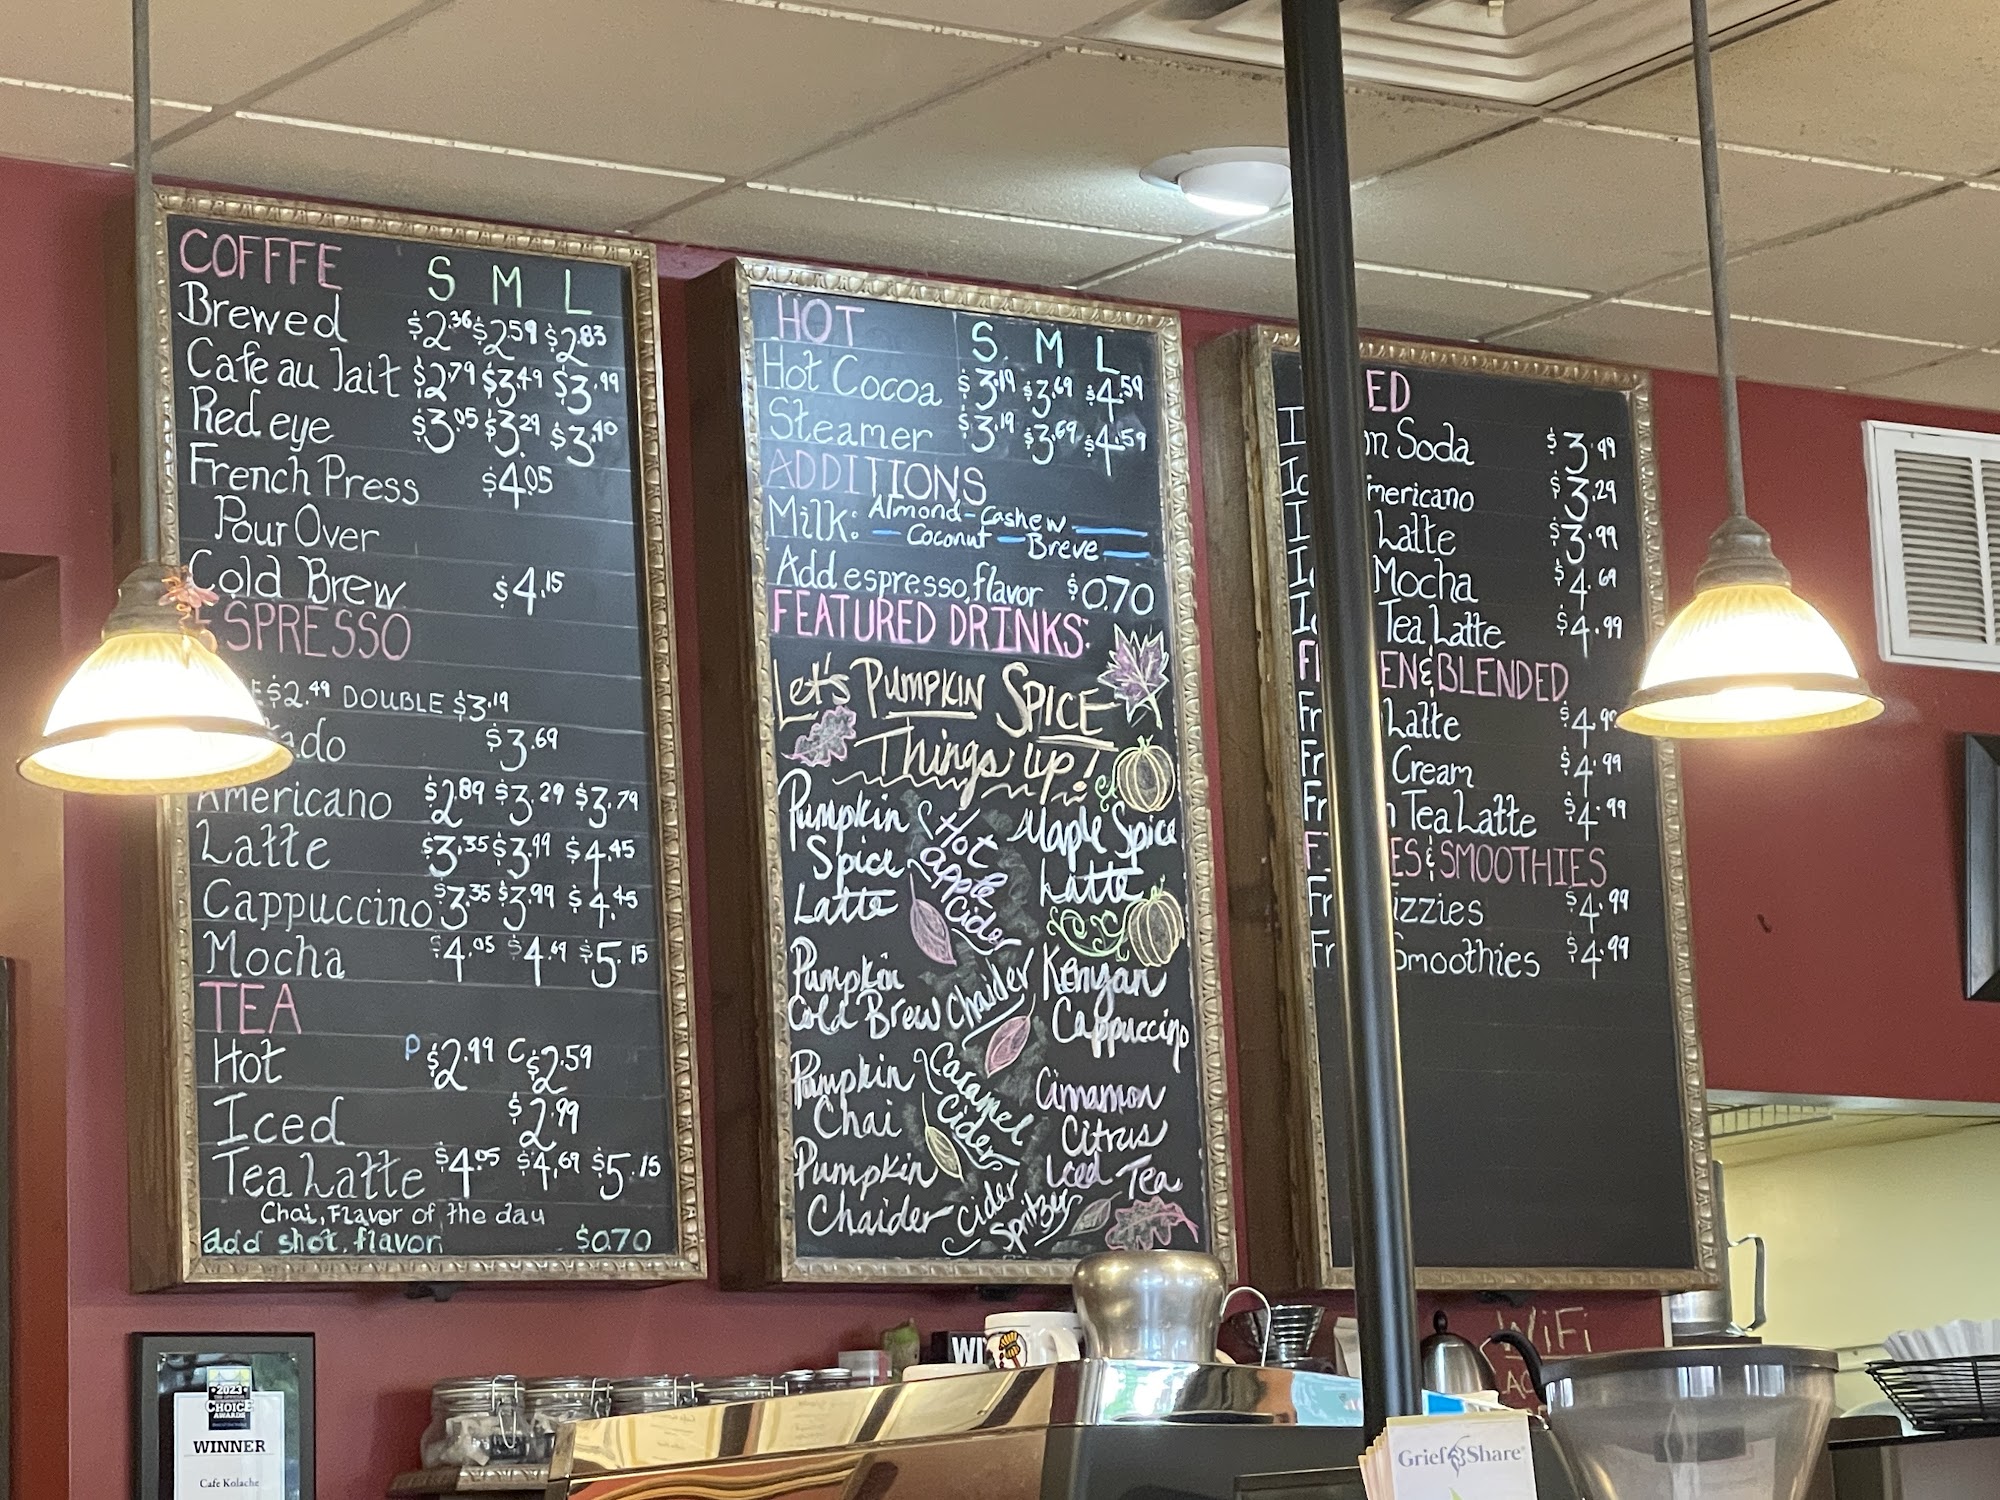 COFFFE S M L
Brewed $2.36 $2.59 $2.83
Cafe au lait $2.79 $3.49 $3.99
Red eye $3.05 $3.29 $3.40
French Press $4.05
Pour Over
Cold Brew $4.15
ESPRESSO
$2.49 DOUBLE $3.19
$3.69
Americano $2.89 $3.29 $3.79
Latte $3.35 $3.99 $4.45
Cappuccino $3.35 $3.99 $4.45
Mocha $4.05 $4.69 $5.15
TEA
Hot P $2.99 C $2.59
Iced $2.99
Tea Latte $4.05 $4.69 $5.15
Chai, Flavor of the day
add shot, flavor $0.70
HOT S M L
Hot Cocoa $3.19 $3.69 $4.59
Steamer $3.19 $3.69 $4.59
ADDITIONS
Milk: Almond - Cashew
Coconut - Breve
Add espresso, flavor $0.70
FEATURED DRINKS:
Let's PUMPKIN SPICE
Things up!
Pumpkin
Spice
Latte
Pumpkin
Cold Brew
Pumpkin
Chai
Pumpkin
Chaider
Hot
apple
Cider
Chaider
Caramel
Cider
Cider
Spritzer
Maple Spice
Latte
Kenyan
Cappuccino
Cinnamon
Citrus
Iced Tea
Soda $3.99
$3.29
Latte $3.99
Mocha $4.69
Tea Latte $4.99
& BLENDED
Latte
Cream $4.99
Tea Latte $4.99
& SMOOTHIES
$4.99
Smoothies $4.99
WiFi
2023
CHOICE
AWARDS
WINNER
Cafe Kolache
GriefShare